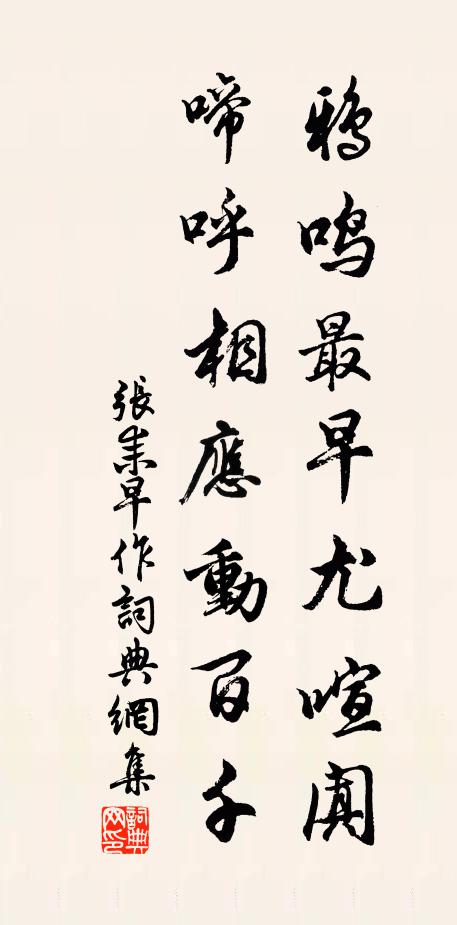 鴉鳴最早尤喧闐
啼呼相應動百千
張耒早作詞典網集
詞典網印